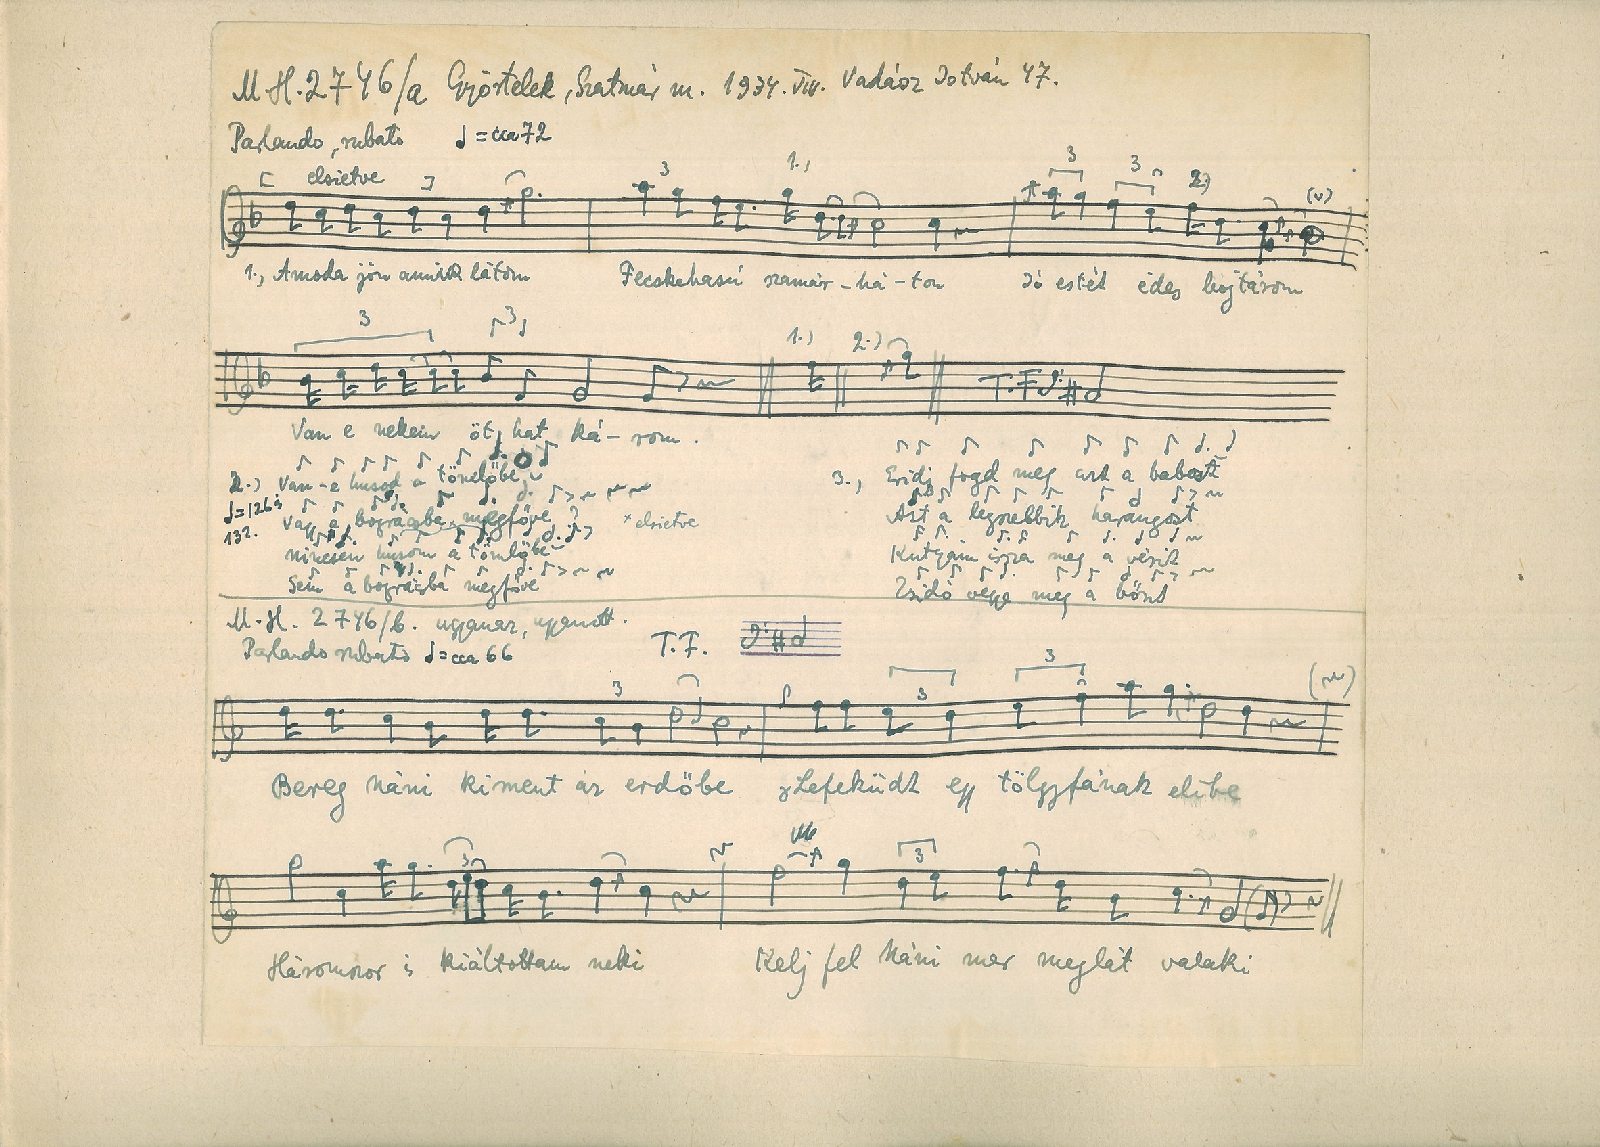 M.H. 2746/a Győrtelek, Szatmár m. 1934. VIII. Vadász István 47.
Parlando, rubato ♩=cca 72
elsietve 3 1.) 3 3 2.)
1., Amoda jön amint látom Fecskehasú szamár-há-ton Jó estét édes bojtárom
3 3 1.) 2.) T.F.
Van e nekem öt, hat ká-rom.
2.) Van-e husod a tömlőbe
♩=126 is
132.
Vagy a bográcsba megfőve? × elsietve
nincsen husom a tömlőbe
Sem a bográcsba megfőve
3., Eridj fogd meg azt a
Azt a legszebbik harangost
Kutyám issza meg a vérit
Zsidó vegye meg a bőrit
M.H. 2746/b. ugyanaz, ugyanott.
Parlando rubato ♩=cca 66 T.F.
3 3 3
Bereg Náni kiment az erdőbe Lefeküdt egy tölgyfának elibe
3 3
Háromszor is kiáltottam neki Kelj fel Náni mer meglát valaki